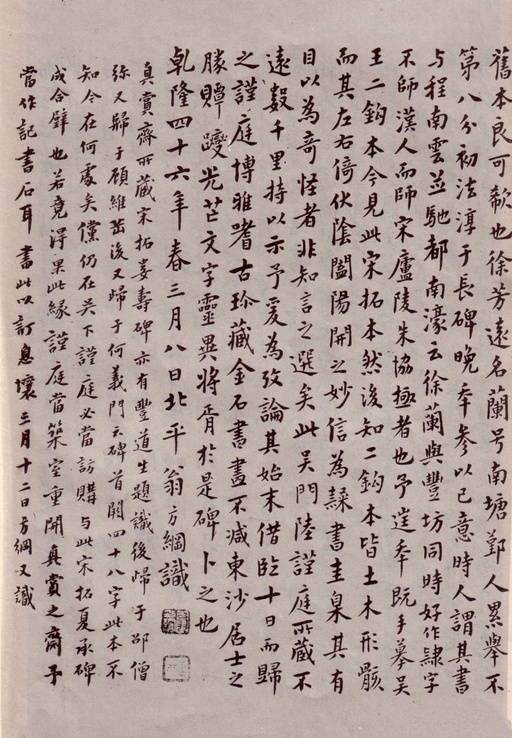 舊本良可欷也徐芳遠名蘭号南塘鄞人累舉不
第八分初法淳于長碑晚年參以已意時人謂其書
与程南雲並馳都南濠云徐蘭與豐坊同時好作隸字
不師漢人而師宋廬陵朱協極者也予往年既手摹吴
王二鈎本今見此宋拓本然後知二鈎本皆土木形骸
而其左右倚伏陰闔陽開之妙信為隸書圭臬其有
目以為奇怪者非知言之選矣此吴門陸謹庭所藏不
遠數千里持以示予爰為攷論其始末借臨十日而歸
之謹庭博雅嗜古珍藏金石書畫不減東沙居士之
賸贉躞光芒文字靈異將胥於是碑卜之也
乹隆四十六年春三月八日北平翁方綱識
真賞齋所藏宋拓婁壽碑亦有豐道生題識後歸于郘僧
弥又歸于顧維嶽後又歸于何義門云碑首闕四十八字此本不
知今在何處矣儻仍在吴下謹庭必當訪購与此宋拓夏承碑
成合璧也若竟得果此緣謹庭當築室重開真賞之齋予
當作記書石耳書此以訂息壤三月十二日方綱又識